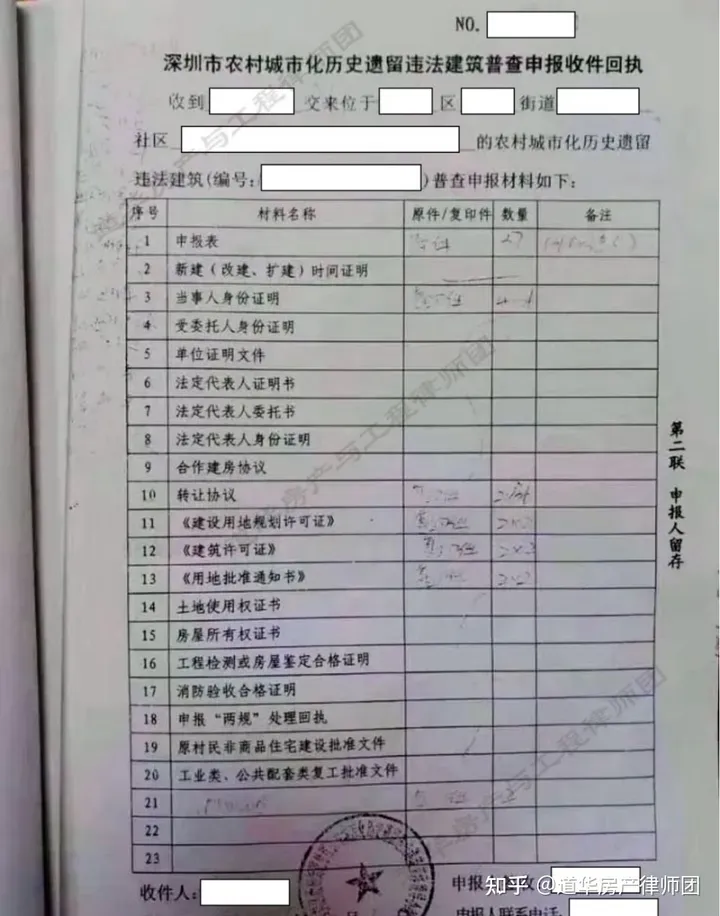 NO.
深圳市农村城市化历史遗留违法建筑普查申报收件回执
收到 交来位于 区 街道
社区 的农村城市化历史遗留
违法建筑(编号: )普查申报材料如下:
序号 材料名称 原件/复印件 数量 备注
1 申报表
2 新建(改建、扩建)时间证明
3 当事人身份证明
4 受委托人身份证明
5 单位证明文件
6 法定代表人证明书
7 法定代表人委托书
8 法定代表人身份证明
9 合作建房协议
10 转让协议
11 《建设用地规划许可证》
12 《建筑许可证》
13 《用地批准通知书》
14 土地使用权证书
15 房屋所有权证书
16 工程检测或房屋鉴定合格证明
17 消防验收合格证明
18 申报“两规”处理回执
19 原村民非商品住宅建设批准文件
20 工业类、公共配套类复工批准文件
21
22
23
第二联 申报人留存
收件人:
申报人
申报人联系电话:
知乎 @道华房产律师团
道华房产与工程律师团